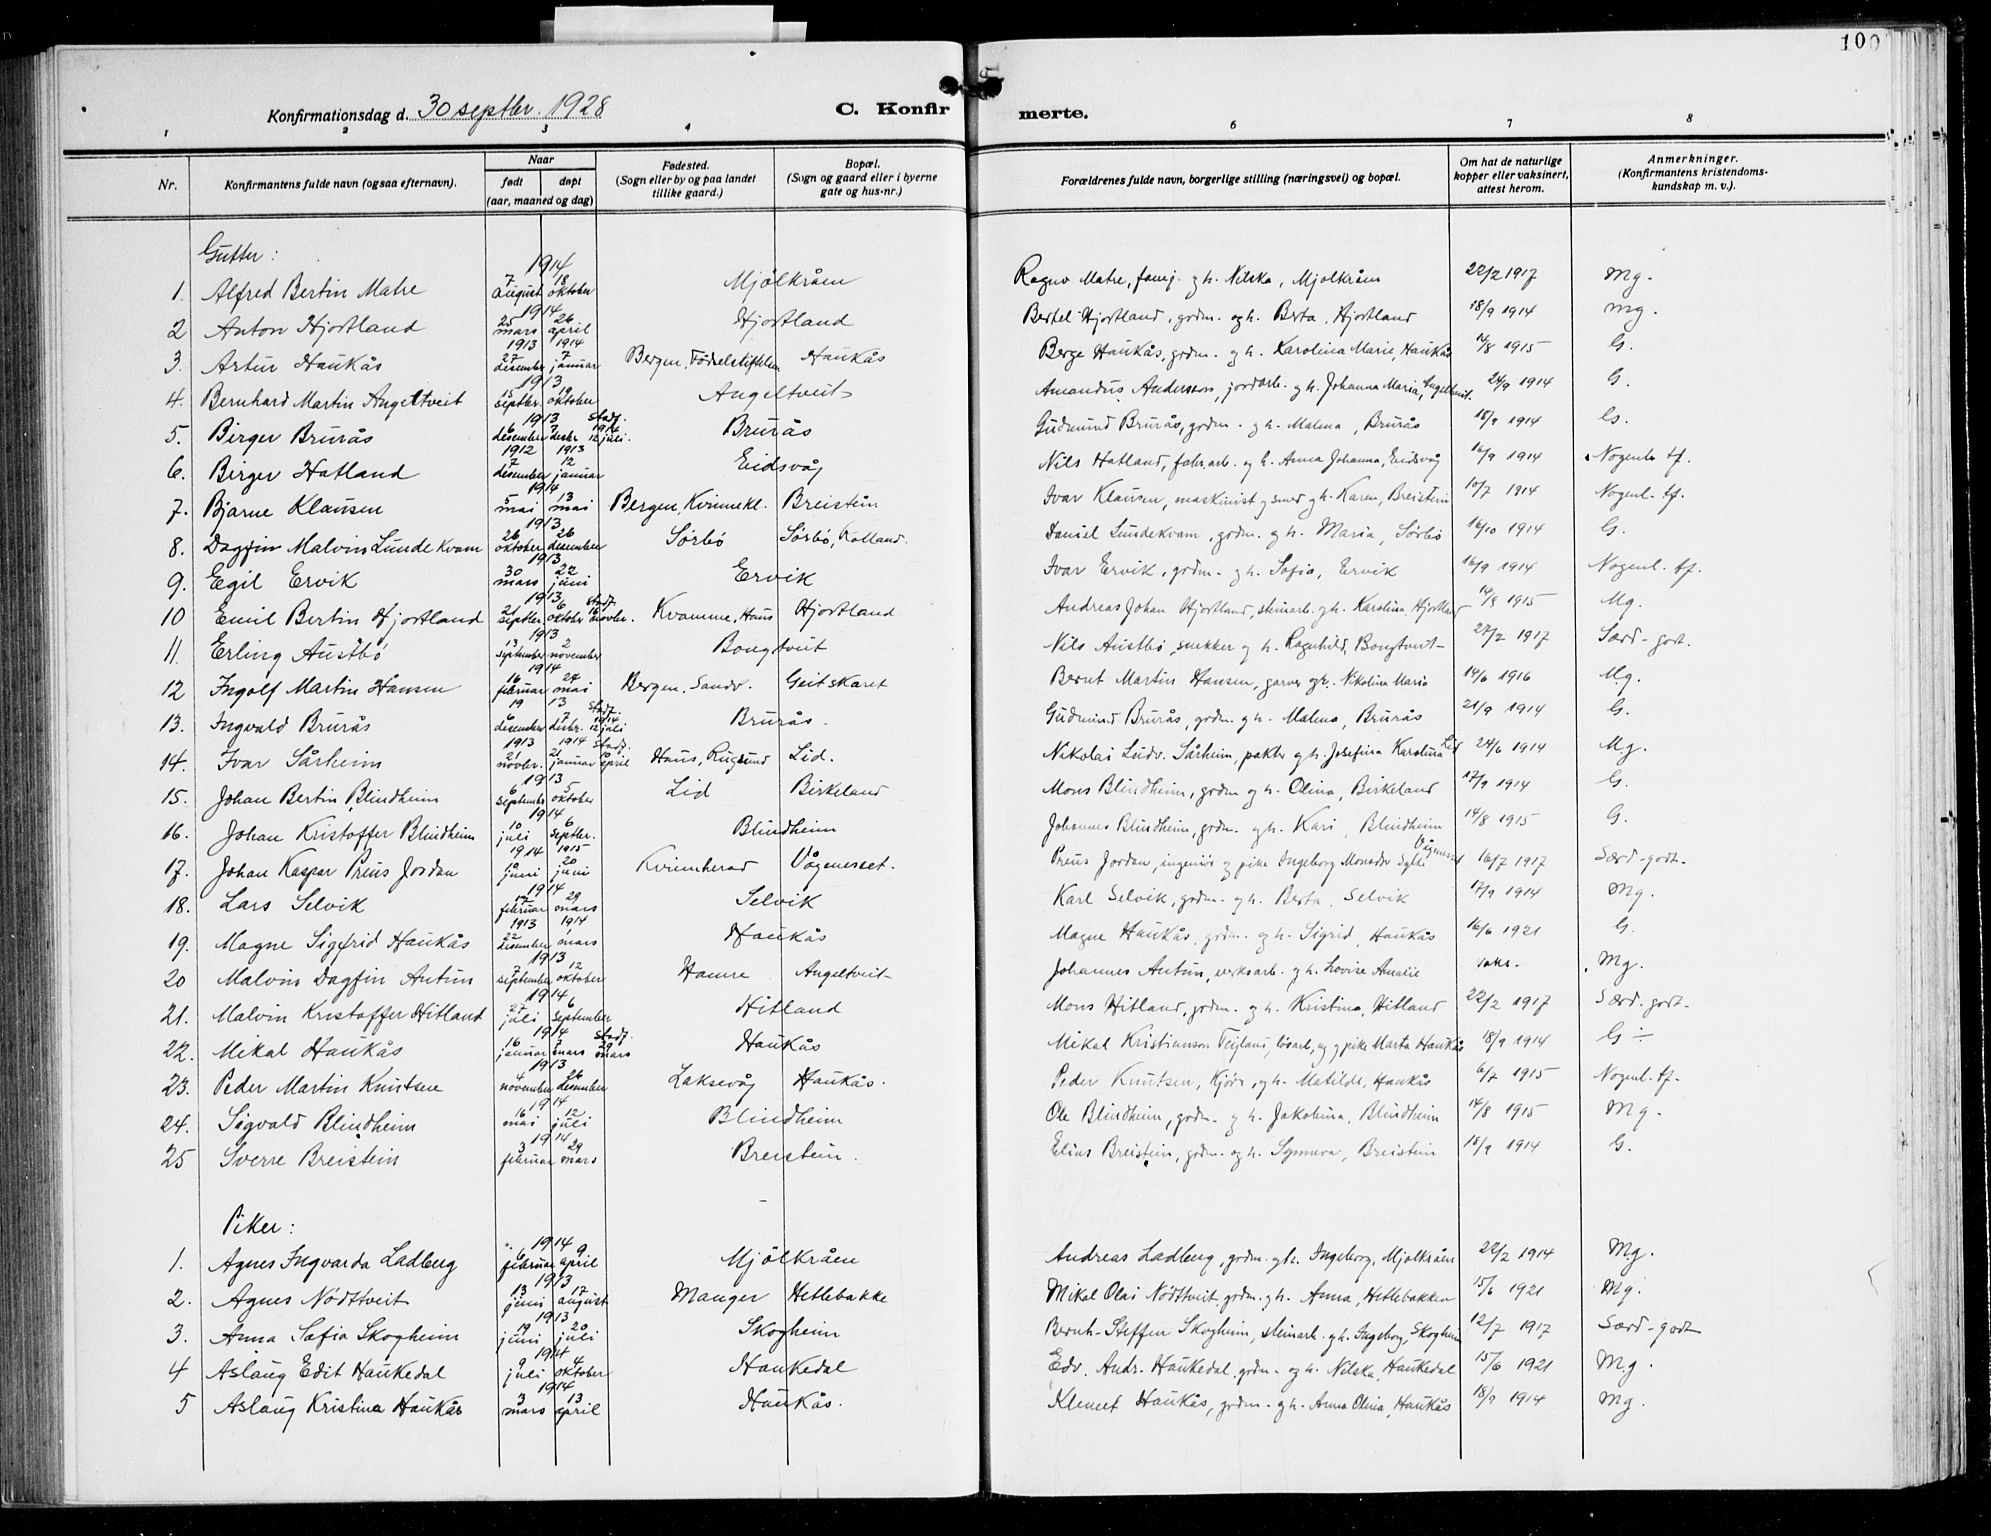 100
Konfirmationsdag d. 30 septbr. 1928 C. Konfirmerte.
1 2 3 4 5 6 7 8
Nr. Konfirmantens fulde navn (ogsaa efternavn). Naar født døpt (aar, maaned og dag) Fødested. (Sogn eller by og paa landet tillike gaard.) Bopæl. (Sogn og gaard eller i byerne gate og hus-nr.) Forældrenes fulde navn, borgerlige stilling (næringsvei) og bopæl. Om hat de naturlige kopper eller vaksinert, attest herom. Anmerkninger. (Konfirmantens kristendoms-kundskap m. v.).
Gutter:
1. Alfred Bertin Matre 1914 7 august 18 oktober Mjølkråen Ragnv Matre, g h. Nilska, Mjølkråen 22/2 1917 Mg.
2 Anton Hjortland 1914 25 mars 26 april Hjortland Bertel Hjortland, grdm. og h. Berta, Hjortland 18/9 1914 Mg.
3. Artur Haukås 1913 27 desember 1914 7 januar Bergen, Fødselstiftelsen Haukås Berge Haukås, grdm. og h. Karolina Marie, Haukås 14/8 1915 G.
4. Bernhard Martin Angeltveit 1913 15 septbr. 19 oktober Angeltveit Amandus Andersson, jordarb. g h. Johanna Maria, Angeltveit. 24/9 1914 G.
5. Birger Brurås 1913 6 desember 7 desbr. stadf. 1914 12 juli. Brurås Gudmund Brurås, grdm. g h. Malena, Brurås 18/9 1914 G.
6. Birger Hatland 1912 7 desember 1913 12 januar Eidsvåg Nils Hatland, fabr.arb. g h. Anna Johanna, Eidsvåg 16/9 1914 Nogenl. tf.
7. Bjarne Klausen 1914 5 mai 13 mai Bergen, Kvinnekl. Breistein Ivar Klausen, maskinist g smed g h. Karen, Breistein 10/7 1914 Nogenl. tf.
8. Dagfin Malvin Lundekvam 1913 26 oktober 26 desember Sørbø Sørbø, Rolland. Daniel Lundekvam, grdm. g h. Maria, Sørbø 16/10 1914 G.
9. Egil Ervik 1913 30 mars 22 juni Ervik Ivar Ervik, grdm. g h. Sofia, Ervik 16/9 1914 Nogenl. tf.
10 Emil Bertin Hjortland 1913 21 septbr. 6 oktober stadf. 16 novbr. Kvamme, Haus Hjortland Andreas Johan Hjortland, steinarb. g h. Karolina, Hjortland 14/8 1915 Mg.
11. Erling Austbø 1913 13 september 2 november Bongtveit Nils Austbø, snekker g h. Ragnhild, Bongtveit 22/2 1917 Særd. godt.
12 Ingolf Martin Hansen 1914 16 februar 24 mai Bergen, Sandv. Geitskaret Bernt Martin Hansen, garver g h. Nikolina Maria 14/6 1916 Mg.
13. Ingvald Brurås 1913 6 desember 7 desbr. stadf. 1914 12 juli Brurås. Gudmund Brurås, grdm. g h. Malena, Brurås 21/9 1914 G.
14. Ivar Sårheim 1913 21 novbr. 1914 21 januar stadf. april Haus, Rugsund Lid. Nikolai Ludv. Sårheim, pakter g h. Josefina Karolina Lid 24/6 1914 Mg.
15. Johan Bertin Blindheim 1913 6 september 5 oktober Lid Birkeland Mons Blindheim, grdm og h. Olina, Birkeland 17/9 1914 G.
16. Johan Kristoffer Blindheim 1914 10 juli 6 septbr. Blindheim Johannes Blindheim, grdm. g h. Kari, Blindheim 14/8 1915 G.
17. Johan Kaspar Preus Jordan 1914 19 juni 1915 20 juni Kvinnherad Vågenesset. Preus Jordan, ingeniør g pike Ingeborg Monsdtr Vågenesset 16/7 1917 Særd. godt.
18. Lars Selvik 1914 17 februar 29 mars Selvik Karl Selvik, grdm. g h. Berta, Selvik 17/9 1914 Mg.
19. Magne Sigfrid Haukås 1913 22 desember 1914 1 mars Haukås Magne Haukås, grdm. og h. Sigrid, Haukås 16/6 1921 G.
20 Malvin Dagfin Antun 1913 7 september 12 oktober Hamre Angeltveit Johannes Antun, verksarb. g h. Lovise Amalie Mg.
21. Malvin Kristoffer Hitland 1914 27 juli 6 september Hitland Mons Hitland, grdm. g h. Kristina, Hitland 22/2 1917 Særd. godt.
22. Mikal Haukås 1914 16 januar 7 mars stadf. 29 mars Haukås Mikal Kristianson Teigland, løsarb, ug g pike Marta Haukås 18/9 1914 G ÷
23. Peder Martin Knutsen 1913 4 november 26 desember Laksevåg Haukås. Peder Knutsen, g h. Matilde, Haukås 6/7 1915 Nogenl. tf.
24. Sigvald Blindheim 1914 16 mai 12 juli Blindheim Ole Blindheim, grdm. g h. Jakobina, Blindheim 14/8 1915 Mg.
25 Sverre Breistein 1914 3 februar 29 mars Breistein. Elias Breistein, grdm. og h. Synneva, Breistein 18/9 1914 G.
Piker:
1. Agnes Ingvarda Ladberg 1914 6 februar 9 april Mjølkråen Andreas Ladberg, grdm. g h. Ingeborg, Mjølkråen 22/2 1914 Mg.
2. Agnes Nødttveit 1913 13 juni 17 august Manger Hetlebakke Mikal Olai Nødttveit, grdm. g h. Anna, Hetlebakken 15/6 1921 Mg.
3. Anna Safia Skogheim 1913 19 juni 20 juli Skogheim Bernh. Steffen Skogheim, steinarb. g h. Ingeborg, Skogheim 12/7 1917 Særd. godt
4 Aslaug Edit Haukedal 1914 9 juli 4 oktober Haukedal Edv. Andr. Haukedal, grdm. og h. Nilska, Haukedal 15/6 1921 Mg.
5 Aslaug Kristina Haukås 1914 3 mars 13 april Haukås. Klemet Haukås, grdm. g h. Anna Olina, Haukås 18/9 1914 Mg.